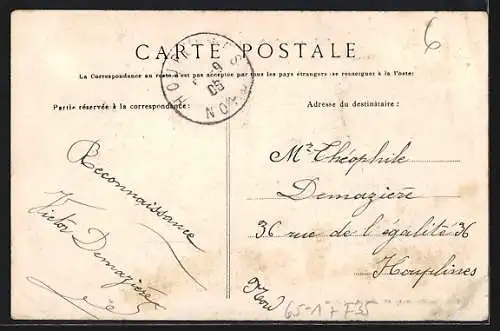 6
CARTE POSTALE
La Correspondance au recto n'est pas acceptée par tous les pays étrangers (se renseigner à la Poste)
Partie réservée à la correspondance:
Adresse du destinataire:
Reconnaissance
Victor Demazière
Mr Théophile
Demazière
36 rue de l'égalité 36
Houplines
Nord